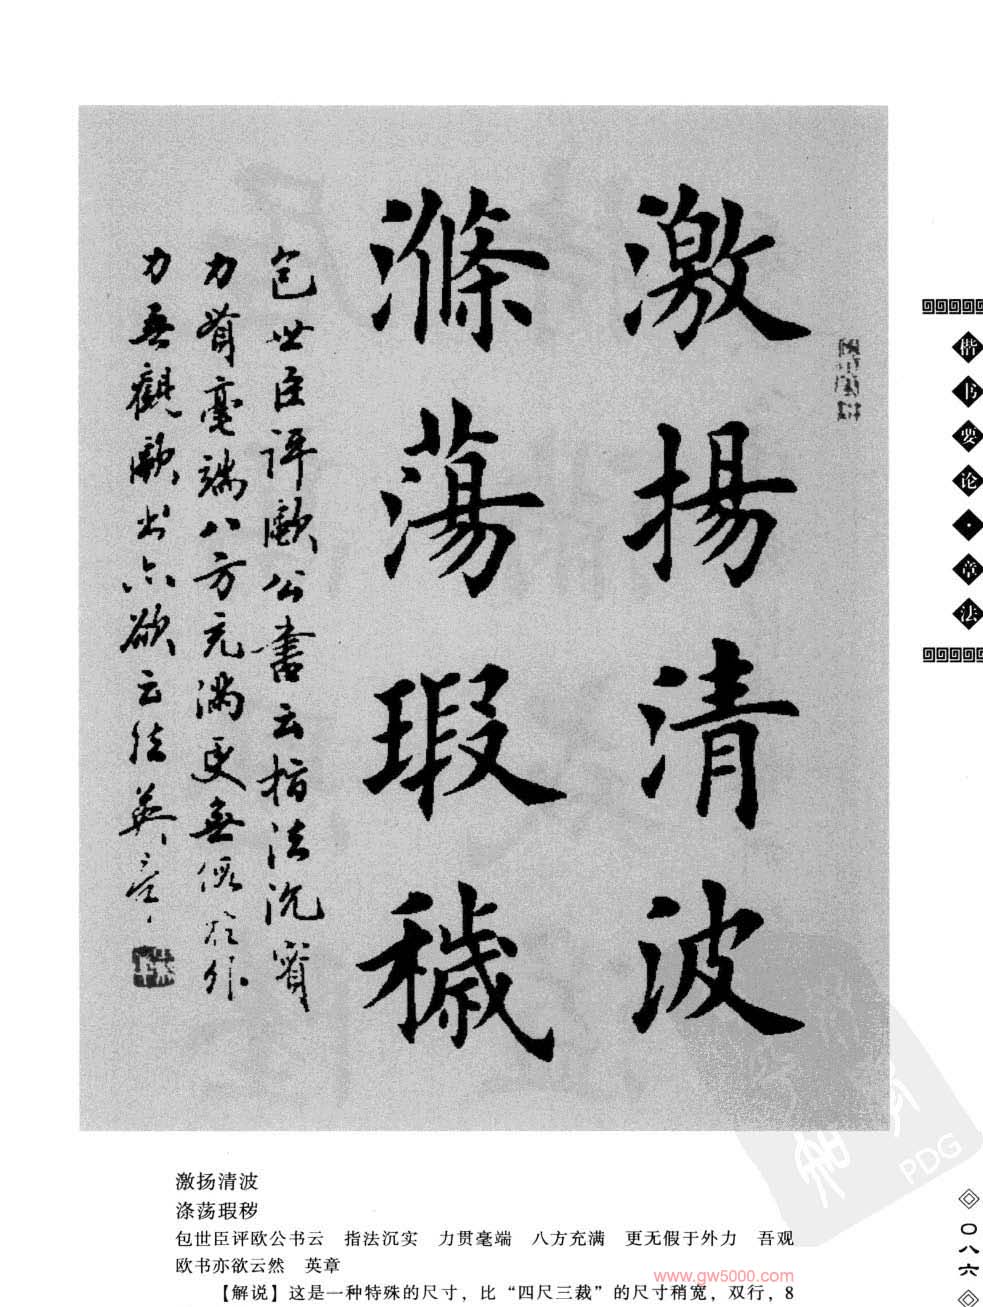 激揚清波
滌蕩瑕穢
包世臣評歐公書云指法沉實
力貫毫端八方充滿更無假於外
力吾觀歐书亦欲云然英章
楷书要论·章法
激扬清波
涤荡瑕秽
包世臣评欧公书云　指法沉实　力贯毫端　八方充满　更无假于外力　吾观
欧书亦欲云然　英章
【解说】这是一种特殊的尺寸，比“四尺三裁”的尺寸稍宽，双行，8
〇八六
PDG
www.gw5000.com